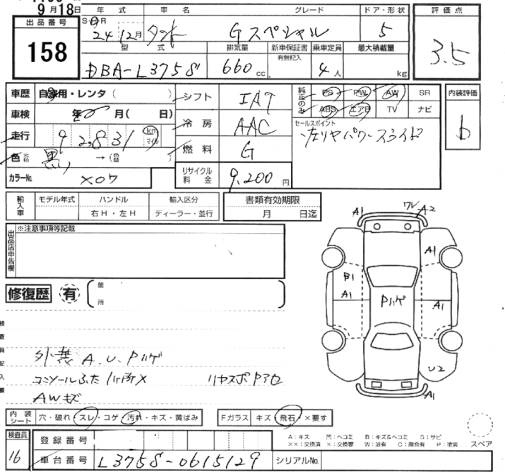 9月18日
出品番号
158
年式 車名 グレード ドア・形状
24年12月 タント Gスペシャル 5
型式 排気量 新車保証書 有無記入 乗車定員 最大積載量
DBA-L375S 660cc 4人 kg
評価点
3.5
車歴 自家用・レンタ( )
車検 年( )月( )日
走行 92,831 km マイル
色
黒
カラーNo. X07
シフト IAT
冷房 AAC
燃料 G
リサイクル料金 9,200円
純正のみ PS PW AW SR
ABS エアB TV ナビ
内装評価
b
セールスポイント
左リヤパワースライド
輸入車 モデル年式 ハンドル 輸入区分
右H・左H ディーラー・並行
書類有効期限
月 日迄
出品店申告欄
※注意事項等記載
修復歴 有 箇所
外装A.U.Pハゲ
AWキズ
内装シート 穴・破れ スレ・コゲ 汚れ・キズ・黄ばみ
Fガラス キズ 飛石 ×要す
検査員 16
登録番号
車台番号 L375S-0615129
シリアルNo.
A1 A2
A1
B1
A1 Pハゲ A1
U2
スペア
A:キズ U:ヘコミ B:キズ&ヘコミ S:サビ